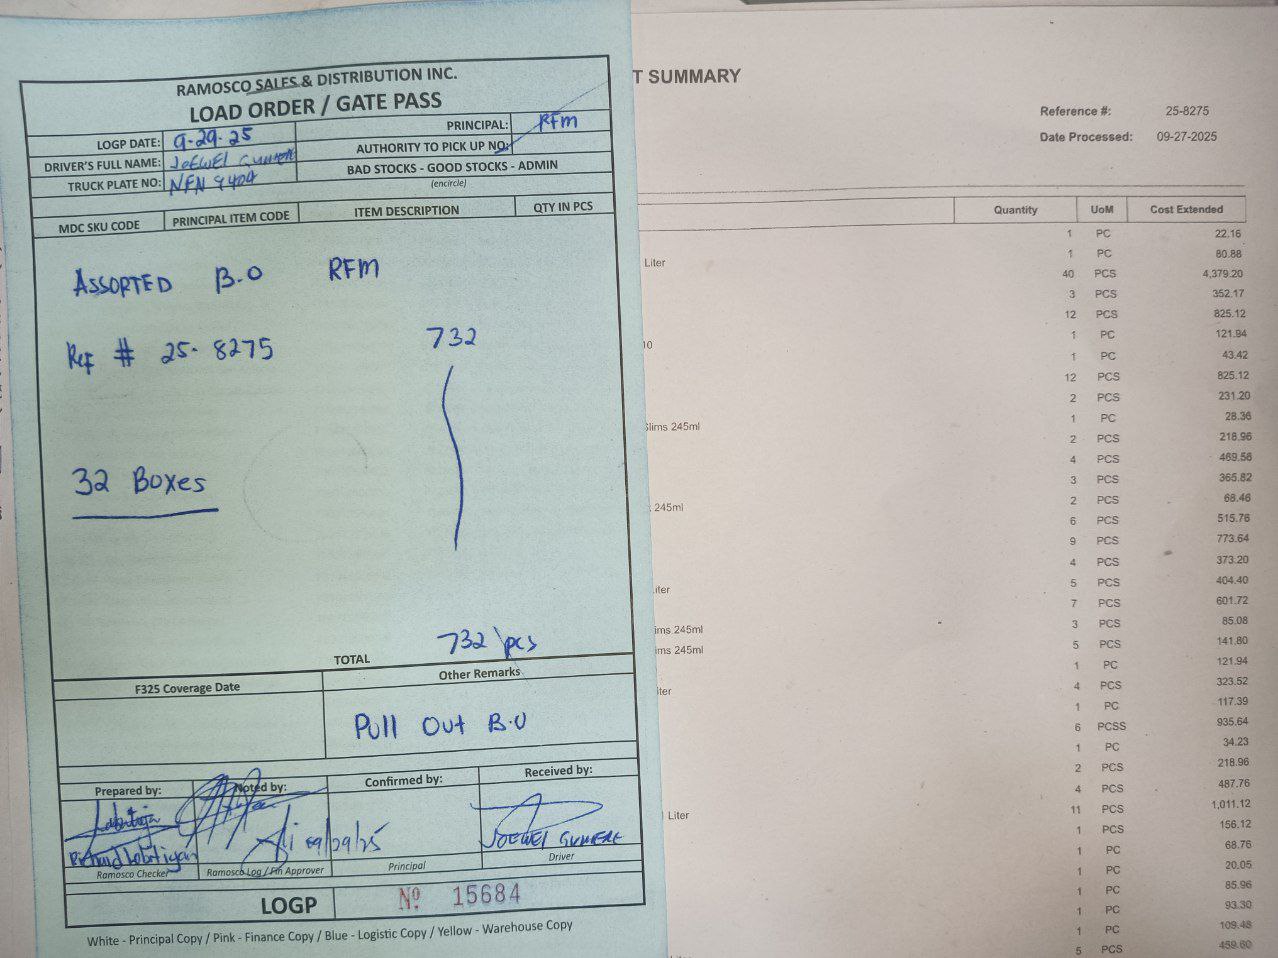 RAMOSCO SALES & DISTRIBUTION INC.
LOAD ORDER / GATE PASS
LOGP DATE: 9-29-25
PRINCIPAL: RFM
DRIVER'S FULL NAME: JOEWEI GUMERE
AUTHORITY TO PICK UP NO:
TRUCK PLATE NO: NFN 9404
BAD STOCKS - GOOD STOCKS - ADMIN
(encircle)
MDC SKU CODE PRINCIPAL ITEM CODE ITEM DESCRIPTION QTY IN PCS
ASSORTED B.O RFM
Ref # 25-8275 732
32 Boxes
TOTAL 732 pcs
F325 Coverage Date Other Remarks
Pull Out B.O
Prepared by: Noted by: Confirmed by: Received by:
09/29/25
JOEWEI GUMERE
Ramosco Checker Ramosco Log / Fin Approver Principal Driver
LOGP Nº 15684
White - Principal Copy / Pink - Finance Copy / Blue - Logistic Copy / Yellow - Warehouse Copy
T SUMMARY
Reference #: 25-8275
Date Processed: 09-27-2025
Quantity UoM Cost Extended
1 PC 22.16
Liter 1 PC 80.88
40 PCS 4,379.20
3 PCS 352.17
12 PCS 825.12
10 1 PC 121.94
1 PC 43.42
12 PCS 825.12
2 PCS 231.20
Slims 245ml 1 PC 28.36
2 PCS 218.96
4 PCS 469.56
3 PCS 365.82
245ml 2 PCS 68.46
6 PCS 515.76
9 PCS 773.64
4 PCS 373.20
iter 5 PCS 404.40
7 PCS 601.72
ims 245ml 3 PCS 85.08
ims 245ml 5 PCS 141.80
1 PC 121.94
iter 4 PCS 323.52
1 PC 117.39
6 PCSS 935.64
1 PC 34.23
2 PCS 218.96
4 PCS 487.76
Liter 11 PCS 1,011.12
1 PCS 156.12
1 PC 68.76
1 PC 20.05
1 PC 85.96
1 PC 93.30
1 PC 109.48
5 PCS 459.60